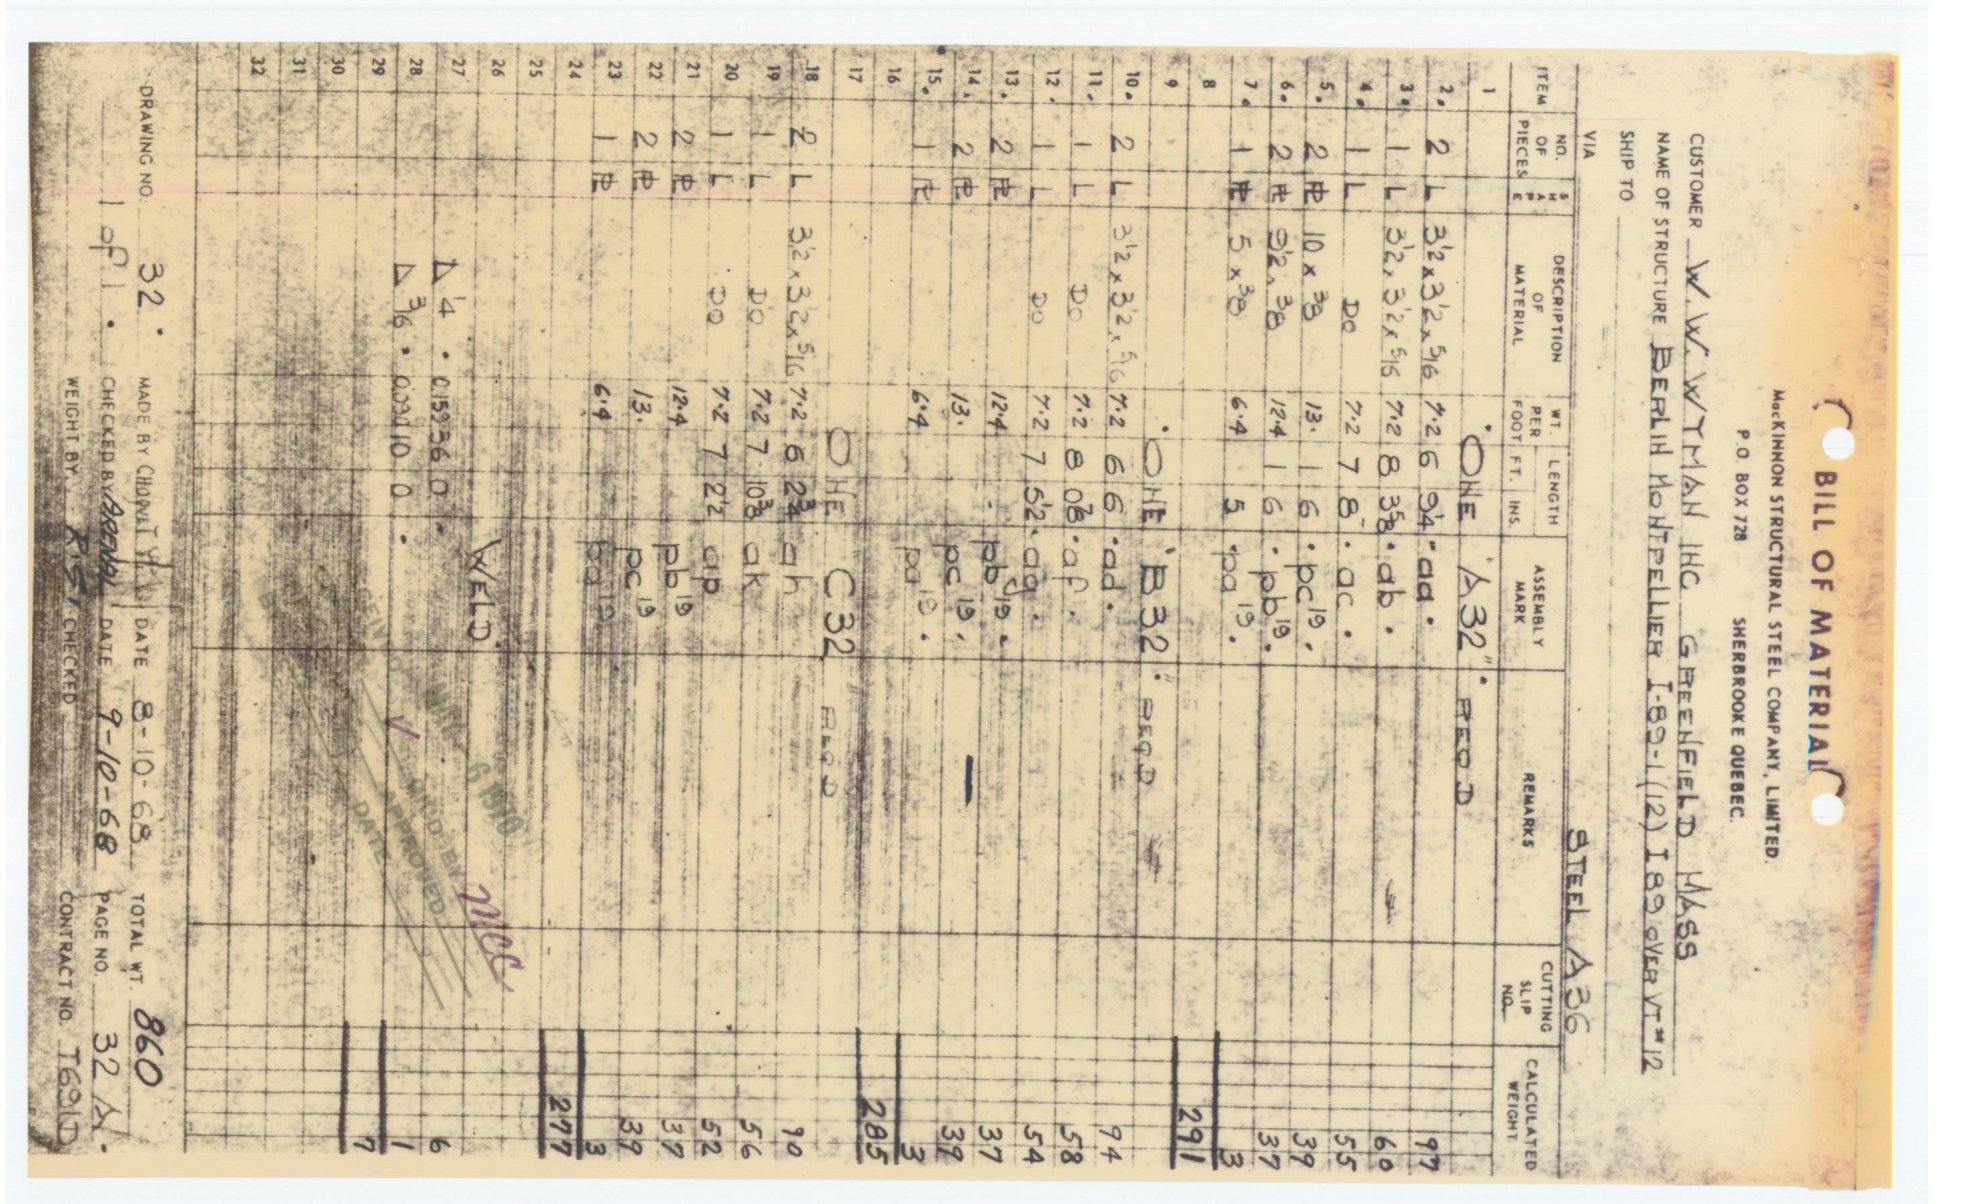 BILL OF MATERIAL
MacKINNON STRUCTURAL STEEL COMPANY, LIMITED.
P.O. BOX 728 SHERBROOKE QUEBEC.
CUSTOMER W. W. WYMAN INC GREENFIELD MASS
NAME OF STRUCTURE BERLIN MONTPELLIER I-89-1(12) I89 OVER VT #12
SHIP TO
VIA STEEL A36
ITEM NO. OF PIECES SHAPE DESCRIPTION OF MATERIAL WT. PER FOOT LENGTH FT. INS. ASSEMBLY MARK REMARKS CUTTING SLIP NO. CALCULATED WEIGHT
1 ONE "A32" REQD
2. 2 L 3½ x 3½ x 5/16 7.2 6 9¼ aa 97
3. 1 L 3½ x 3½ x 5/16 7.2 8 3⅝ ab 60
4. 1 L DO 7.2 7 8 ac 55
5. 2 PL 10 x 3/8 13. 1 6 pc19 39
6. 2 PL 9½ x 3/8 12.4 1 6 pb19 37
7. 1 PL 5 x 3/8 6.4 5 pa19 3
8 291
9 ONE "B32" REQD
10. 2 L 3½ x 3½ x 5/16 7.2 6 6 ad 94
11. 1 L DO 7.2 8 0⅞ af 58
12. 1 L DO 7.2 7 5½ ag 54
13. 2 PL 12.4 pb19 37
14. 2 PL 13. pc19 39
15. 1 PL 6.4 pa19 3
16 285
17 ONE C32 REQD
18 2 L 3½ x 3½ x 5/16 7.2 6 2¾ ah 90
19 1 L DO 7.2 7 10⅜ ak 56
20 1 L DO 7.2 7 2½ ap 52
21 2 PL 12.4 pb19 37
22 2 PL 13. pc19 39
23 1 PL 6.4 pa19 3
24 277
25
26 WELD
27 ¼ 0.159 36 0 6
28 3/16 0.090 10 0 1
29 7
30
31
32
6 1970
CHK'D BY MCC
APPROVED
DATE
DRAWING NO. 32. MADE BY DATE 8-10-68 TOTAL WT. 860
1 of 1. CHECKED BY DATE 9-10-68 PAGE NO. 32 A.
WEIGHT BY CHECKED CONTRACT NO. T691D